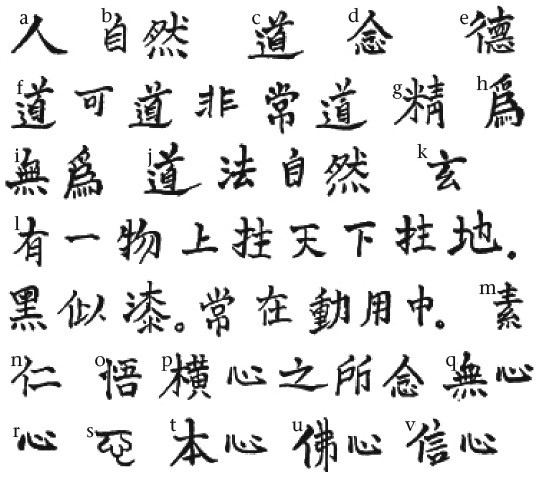 a人 b自然 c道 d念 e德
f道可道非常道 g精 h爲
i無爲 j道法自然 k玄
l有一物上拄天下拄地。
黑似漆。常在動用中。 m素
n仁 o悟 p橫心之所念 q無心
r心 s t本心 u佛心 v信心